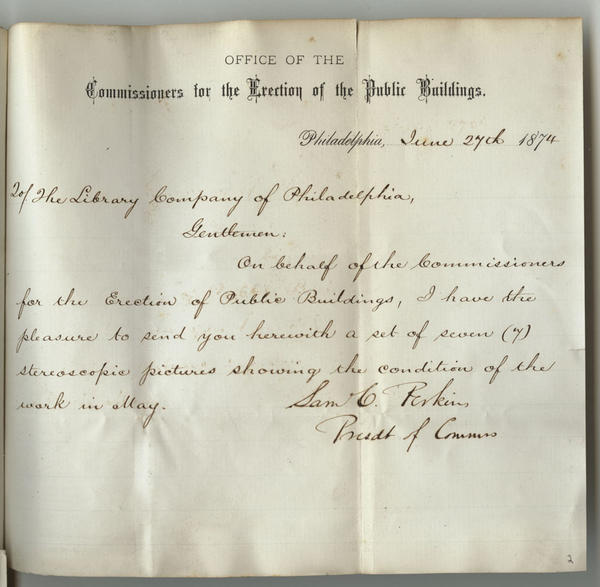 OFFICE OF THE
Commissioners for the Erection of the Public Buildings.
Philadelphia, June 27th 1874
To/ The Library Company of Philadelphia,
Gentlemen:
On behalf of the Commissioners
for the Erection of Public Buildings, I have the
pleasure to send you herewith a set of seven (7)
stereoscopic pictures showing the condition of the
work in May.
Sam C. Perkins
Presdt of Commrs
2